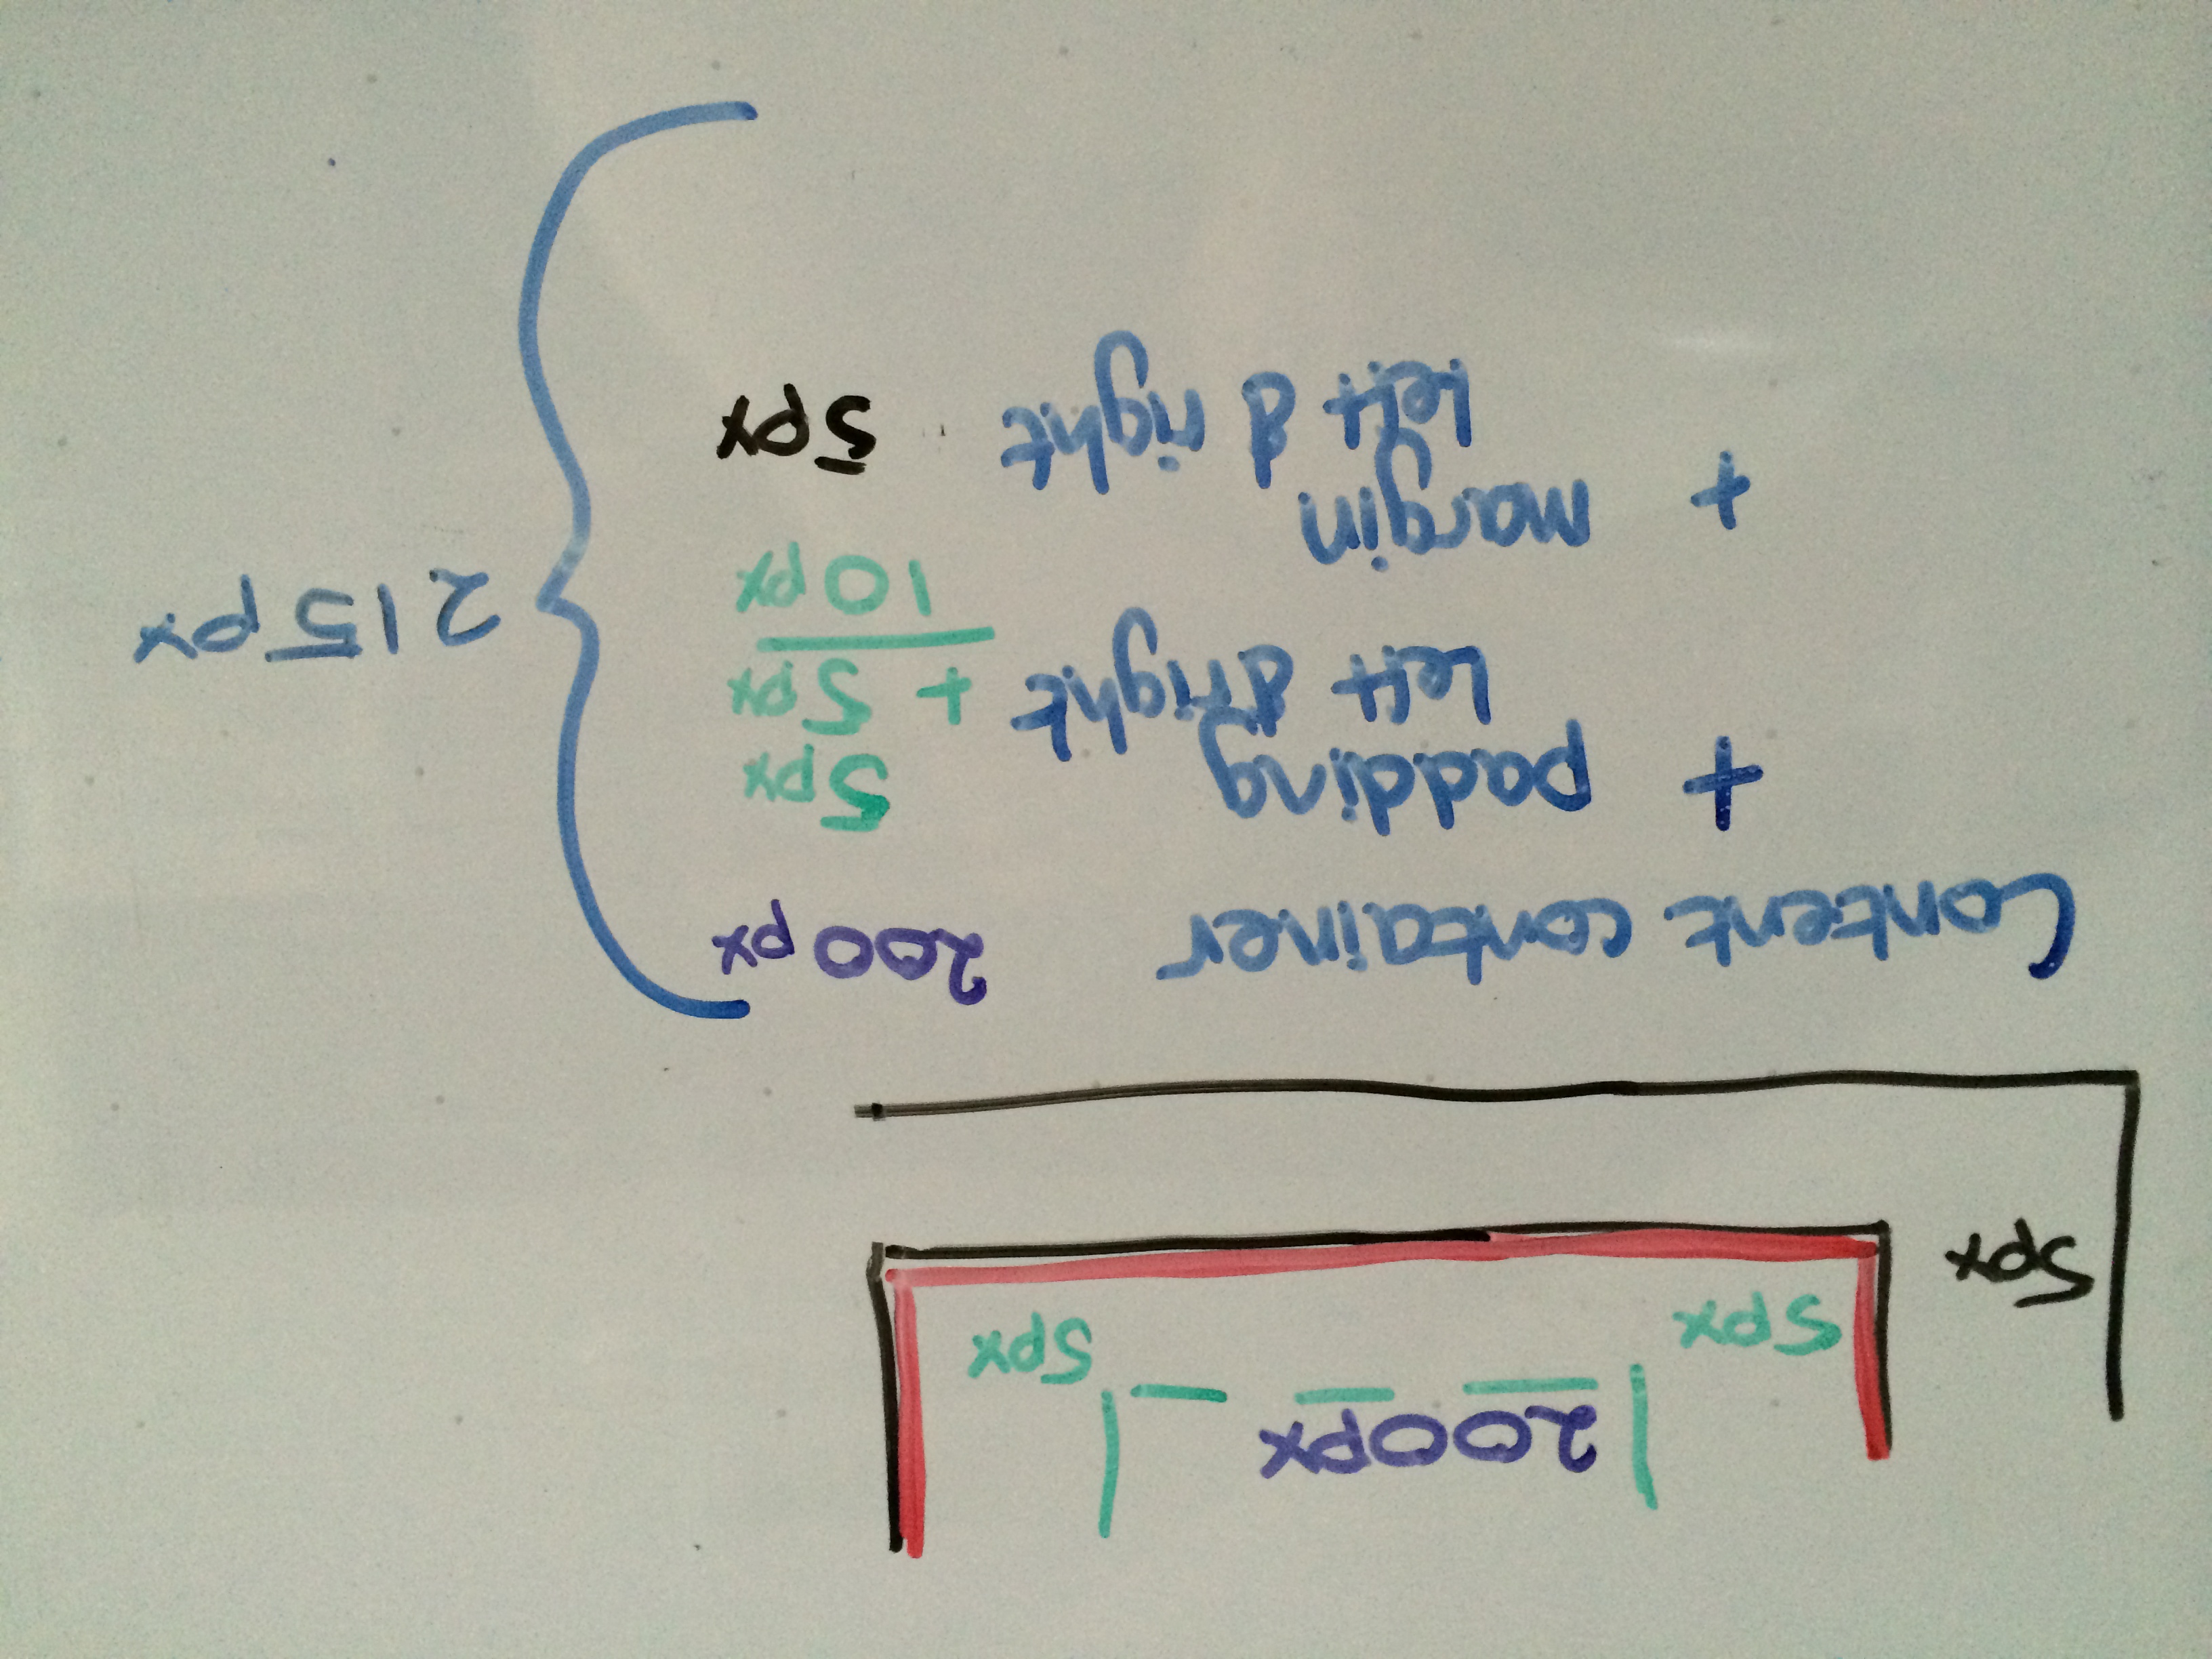 200px
5px
5px
5px
Content container 200px
+ padding 5px
left & right + 5px
10px
215px
+ margin
left & right 5px